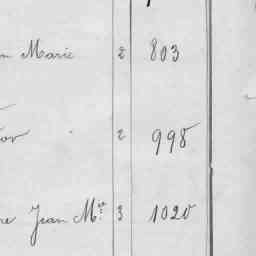 Marie 2 803
2 998
Jean Mie 3 1020